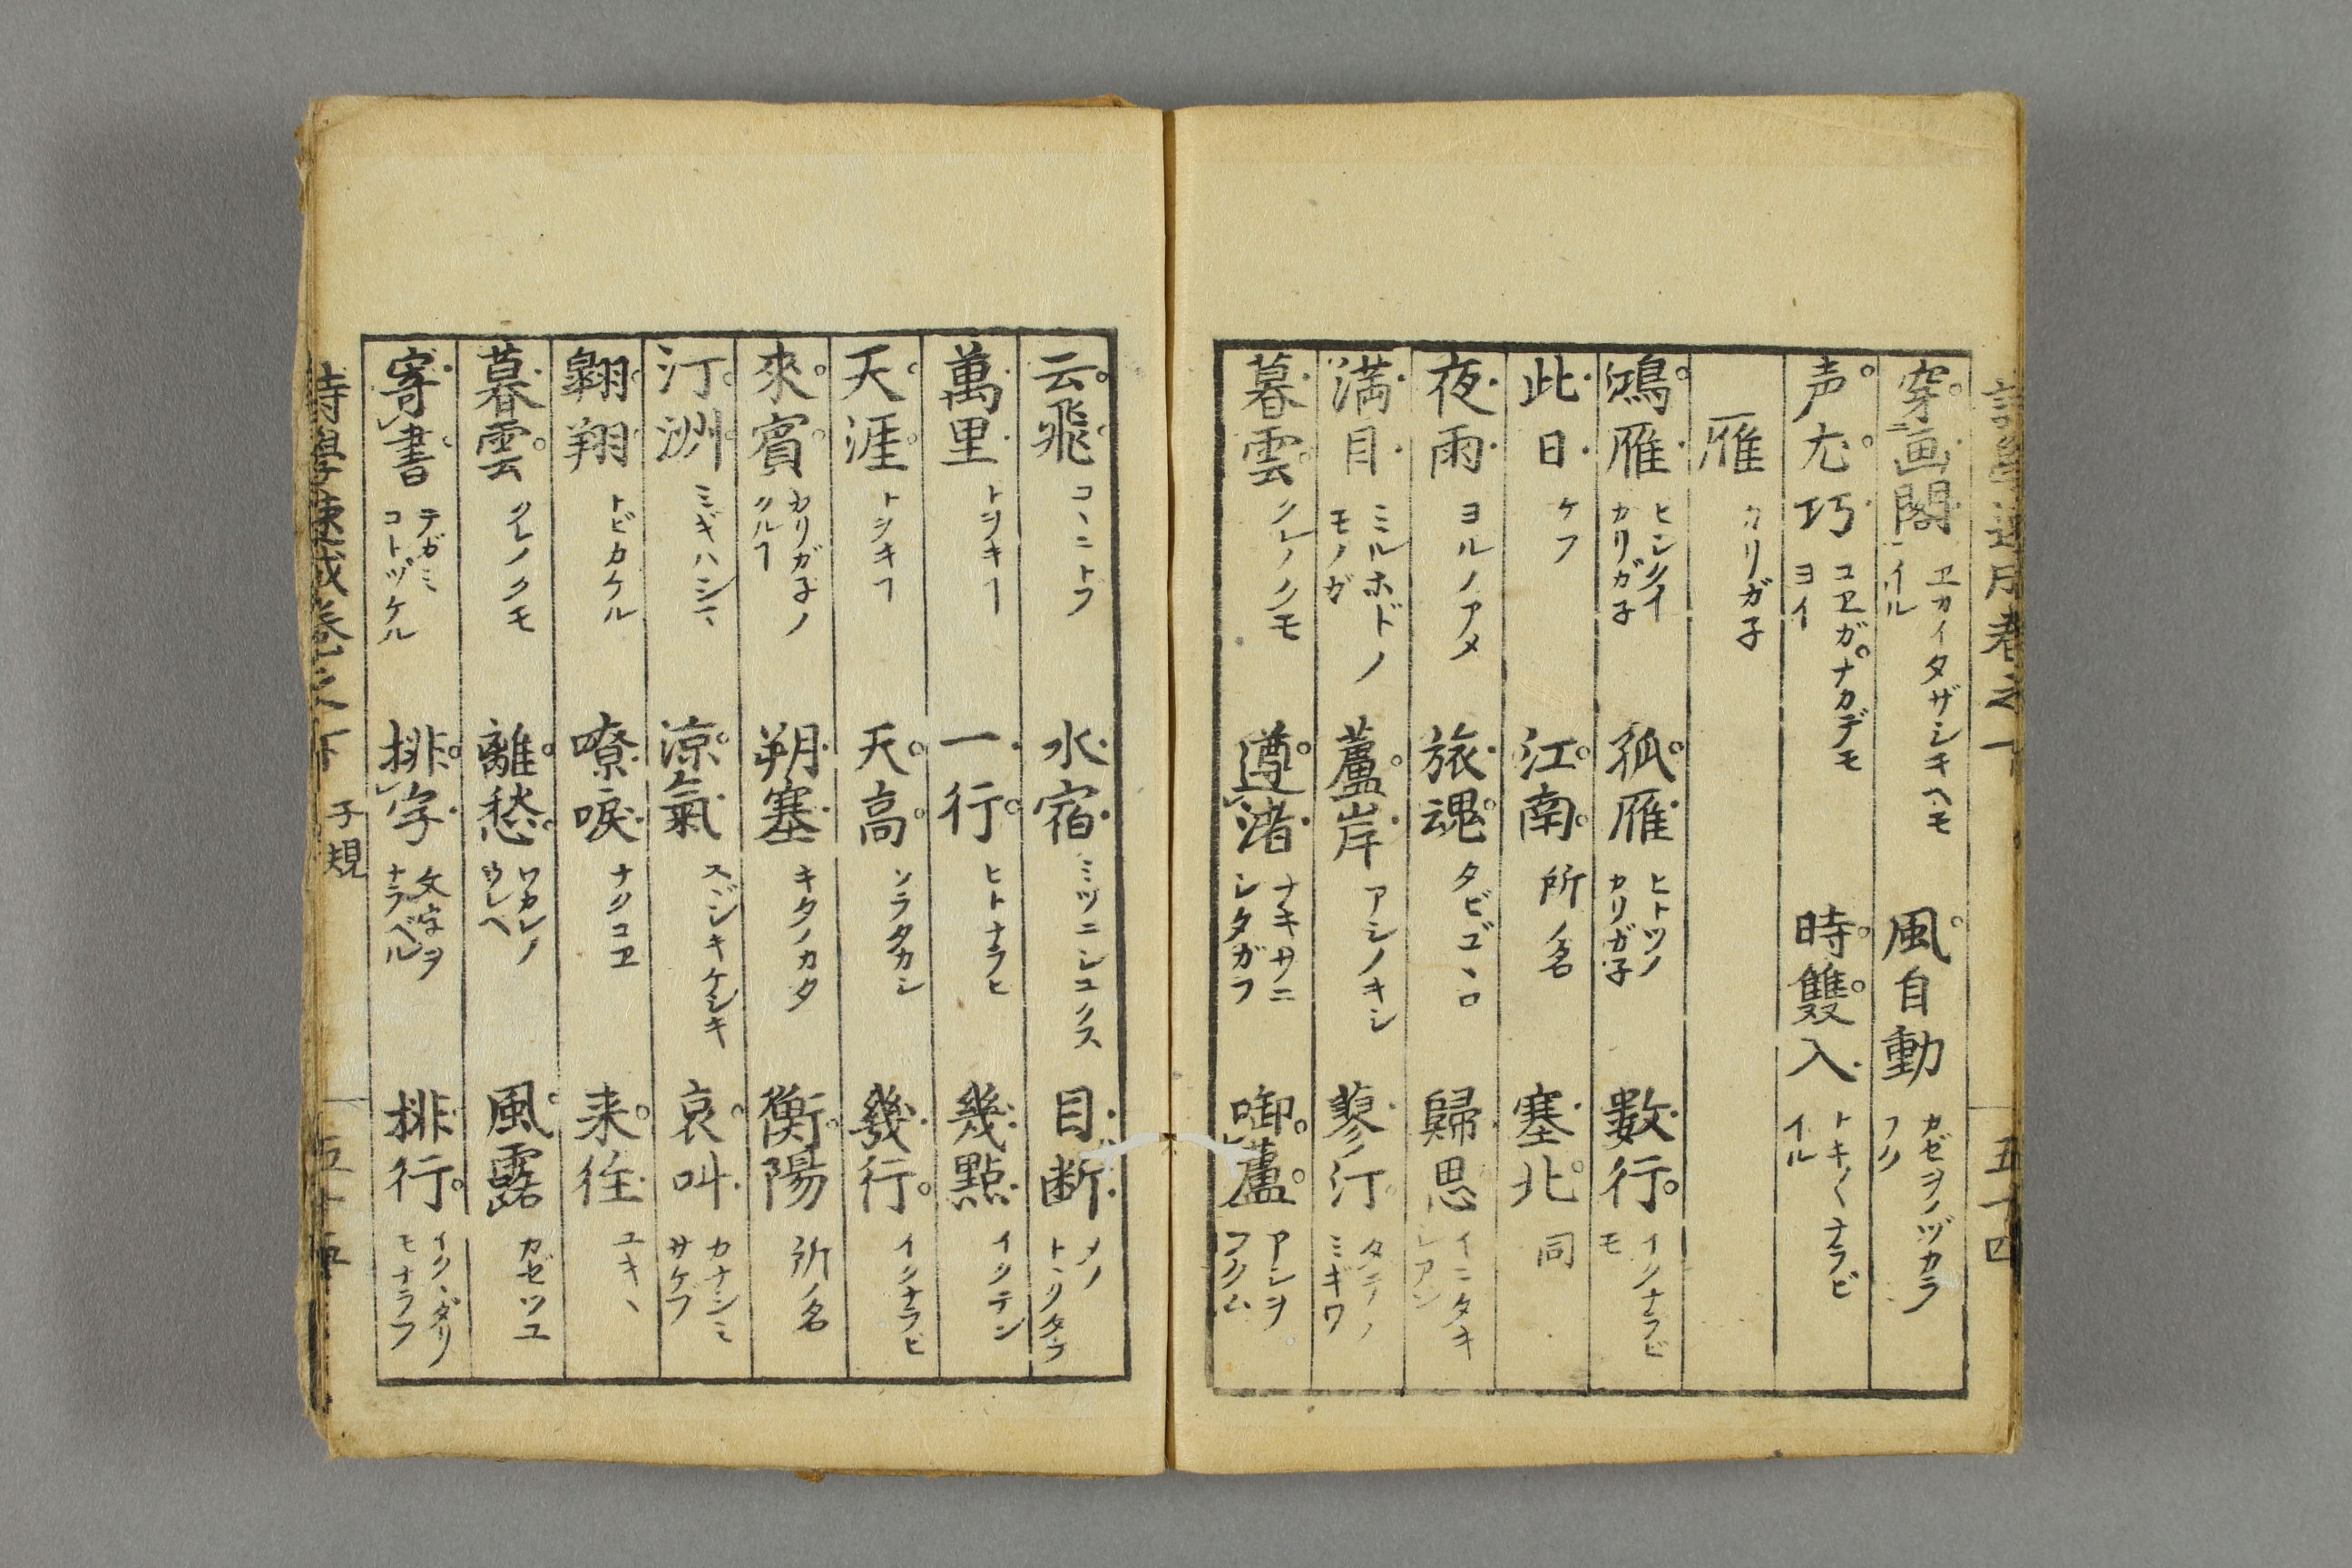 穿画閣 ヱカイタザシキヘモイル 風自動 カゼヲノヅカラフク
声尤巧 コヱガナカデモヨイ 時雙入 トキ〱ナラビイル
雁 カリガ子
鴻雁 ヒシクイカリガ子 孤雁 ヒトツノカリガ子 数行 イクナラビモ
此日 ケフ 江南 所ノ名 塞北 同
夜雨 ヨルノアメ 旅魂 タビゴヽロ 歸思 イニタキ
満目 ミルホドノモノガ 蘆岸 アシノキシ 蓼汀 タデノミギワ
暮雲 クレノクモ 遵渚 ナギサニシタガフ 啣蘆 アシヲフクム
五十四
云飛 コヽニトフ 水宿 ミヅニシユクス 目断 メノトヽクタケ
萬里 トヲキヿ 一行 ヒトナラヒ 幾點 イクテン
天涯 トヲキヿ 天高 ソラタカシ 幾行 イクナラビ
來賓 カリガ子ノクルヿ 朔塞 キタノカタ 衡陽 所ノ名
汀洲 ミギハシマ 涼氣 スヾシキケシキ 哀叫 カナシミサケブ
翱翔 トビカケル 嘹唳 ナクコヱ 来往 ユキヽ
暮雲 クレノクモ 離愁 ワカレノウレヘ 風露 カゼツユ
寄書 テガミコトヅケル 排字 文字ヲナラベル 排行 イククダリモナラフ
子規